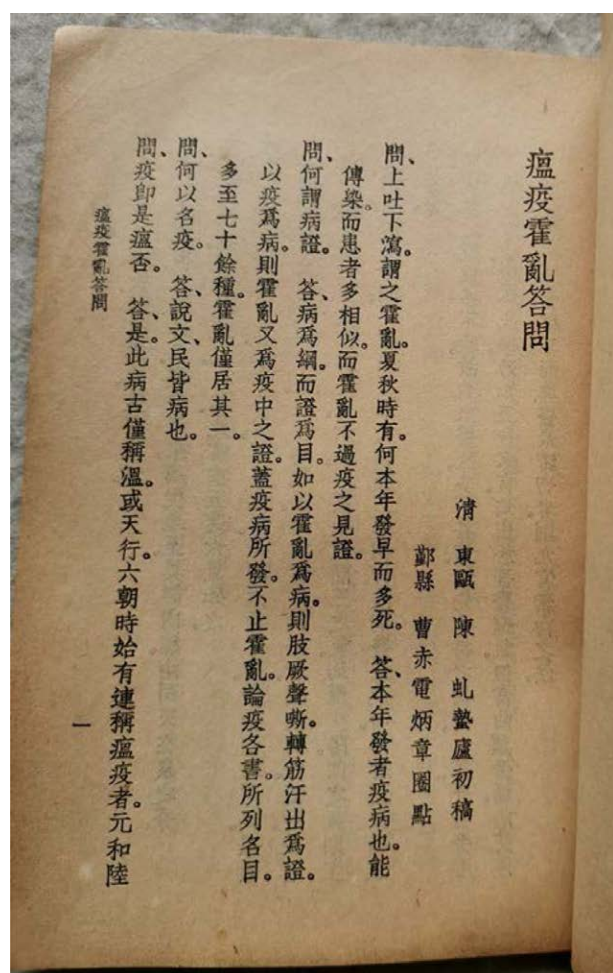 瘟疫霍亂答問
清　東甌　陳　虬蟄廬初稿
鄞縣　曹赤電炳章圈點
問、上吐下瀉。謂之霍亂。夏秋時有。何本年發早而多死。　答、本年發者疫病也。能
傳染而患者多相似。而霍亂不過疫之見證。
問、何謂病證。　答、病爲綱。而證爲目。如以霍亂爲病。則肢厥聲嘶。轉筋汗出爲證。
以疫爲病。則霍亂又爲疫中之證。蓋疫病所發。不止霍亂。論疫各書。所列名目。
多至七十餘種。霍亂僅居其一。
問、何以名疫。　答、說文、民皆病也。
問、疫卽是瘟否。　答、是。此病古僅稱溫。或天行。六朝時始有連稱瘟疫者。元和陸
瘟疫霍亂答問
一